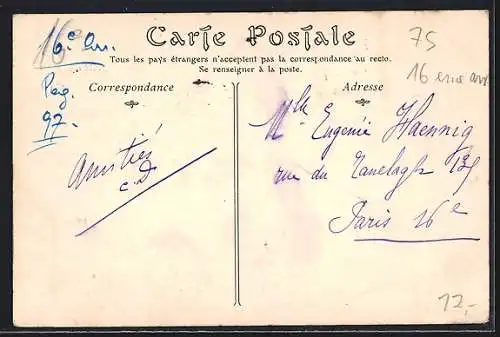 16e Arr.
Carte Postale
75
Tous les pays étrangers n'acceptent pas la correspondance au recto.
Se renseigner à la poste.
16 eme arr
Pag.
97.
Correspondance
Adresse
Mlle Eugenie Haennig
rue du Ranelagh 139
Paris 16e
Amitiés
C.D
12,-